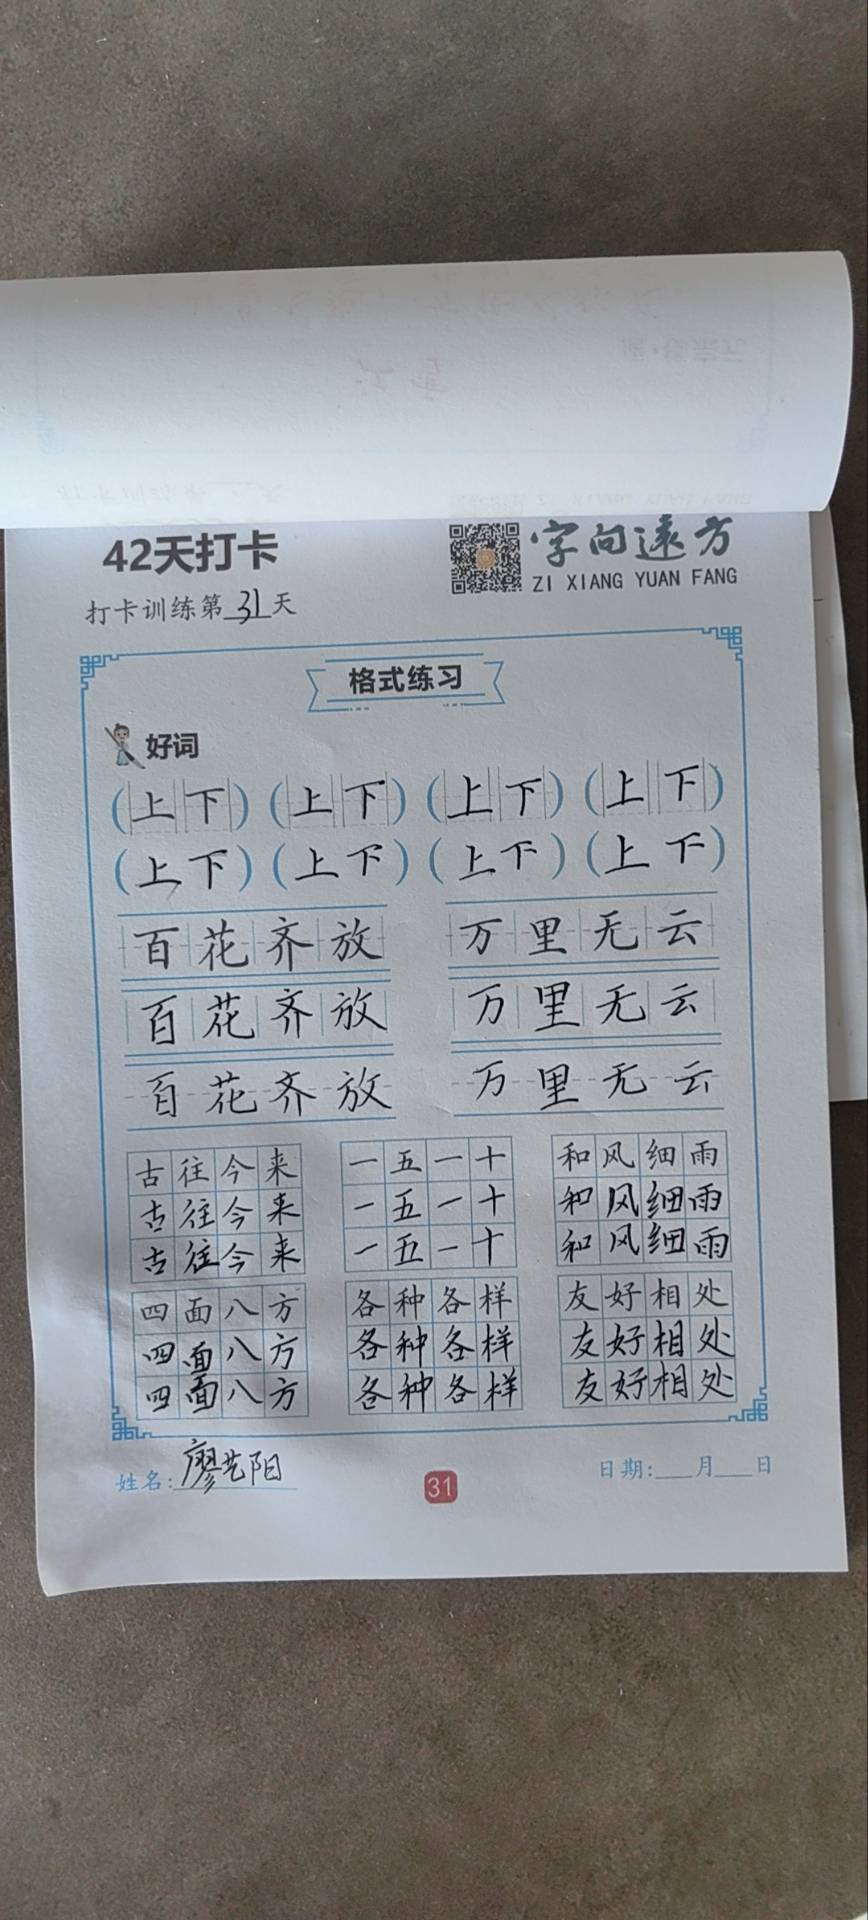 42天打卡
字向远方
ZI XIANG YUAN FANG
打卡训练第31天
格式练习
好词
(上下)(上下)(上下)(上下)
(上下)(上下)(上下)(上下)
百花齐放 万里无云
百花齐放 万里无云
百花齐放 万里无云
古往今来 一五一十 和风细雨
古往今来 一五一十 和风细雨
古往今来 一五一十 和风细雨
四面八方 各种各样 友好相处
四面八方 各种各样 友好相处
四面八方 各种各样 友好相处
姓名:廖艺阳 31 日期:___月___日